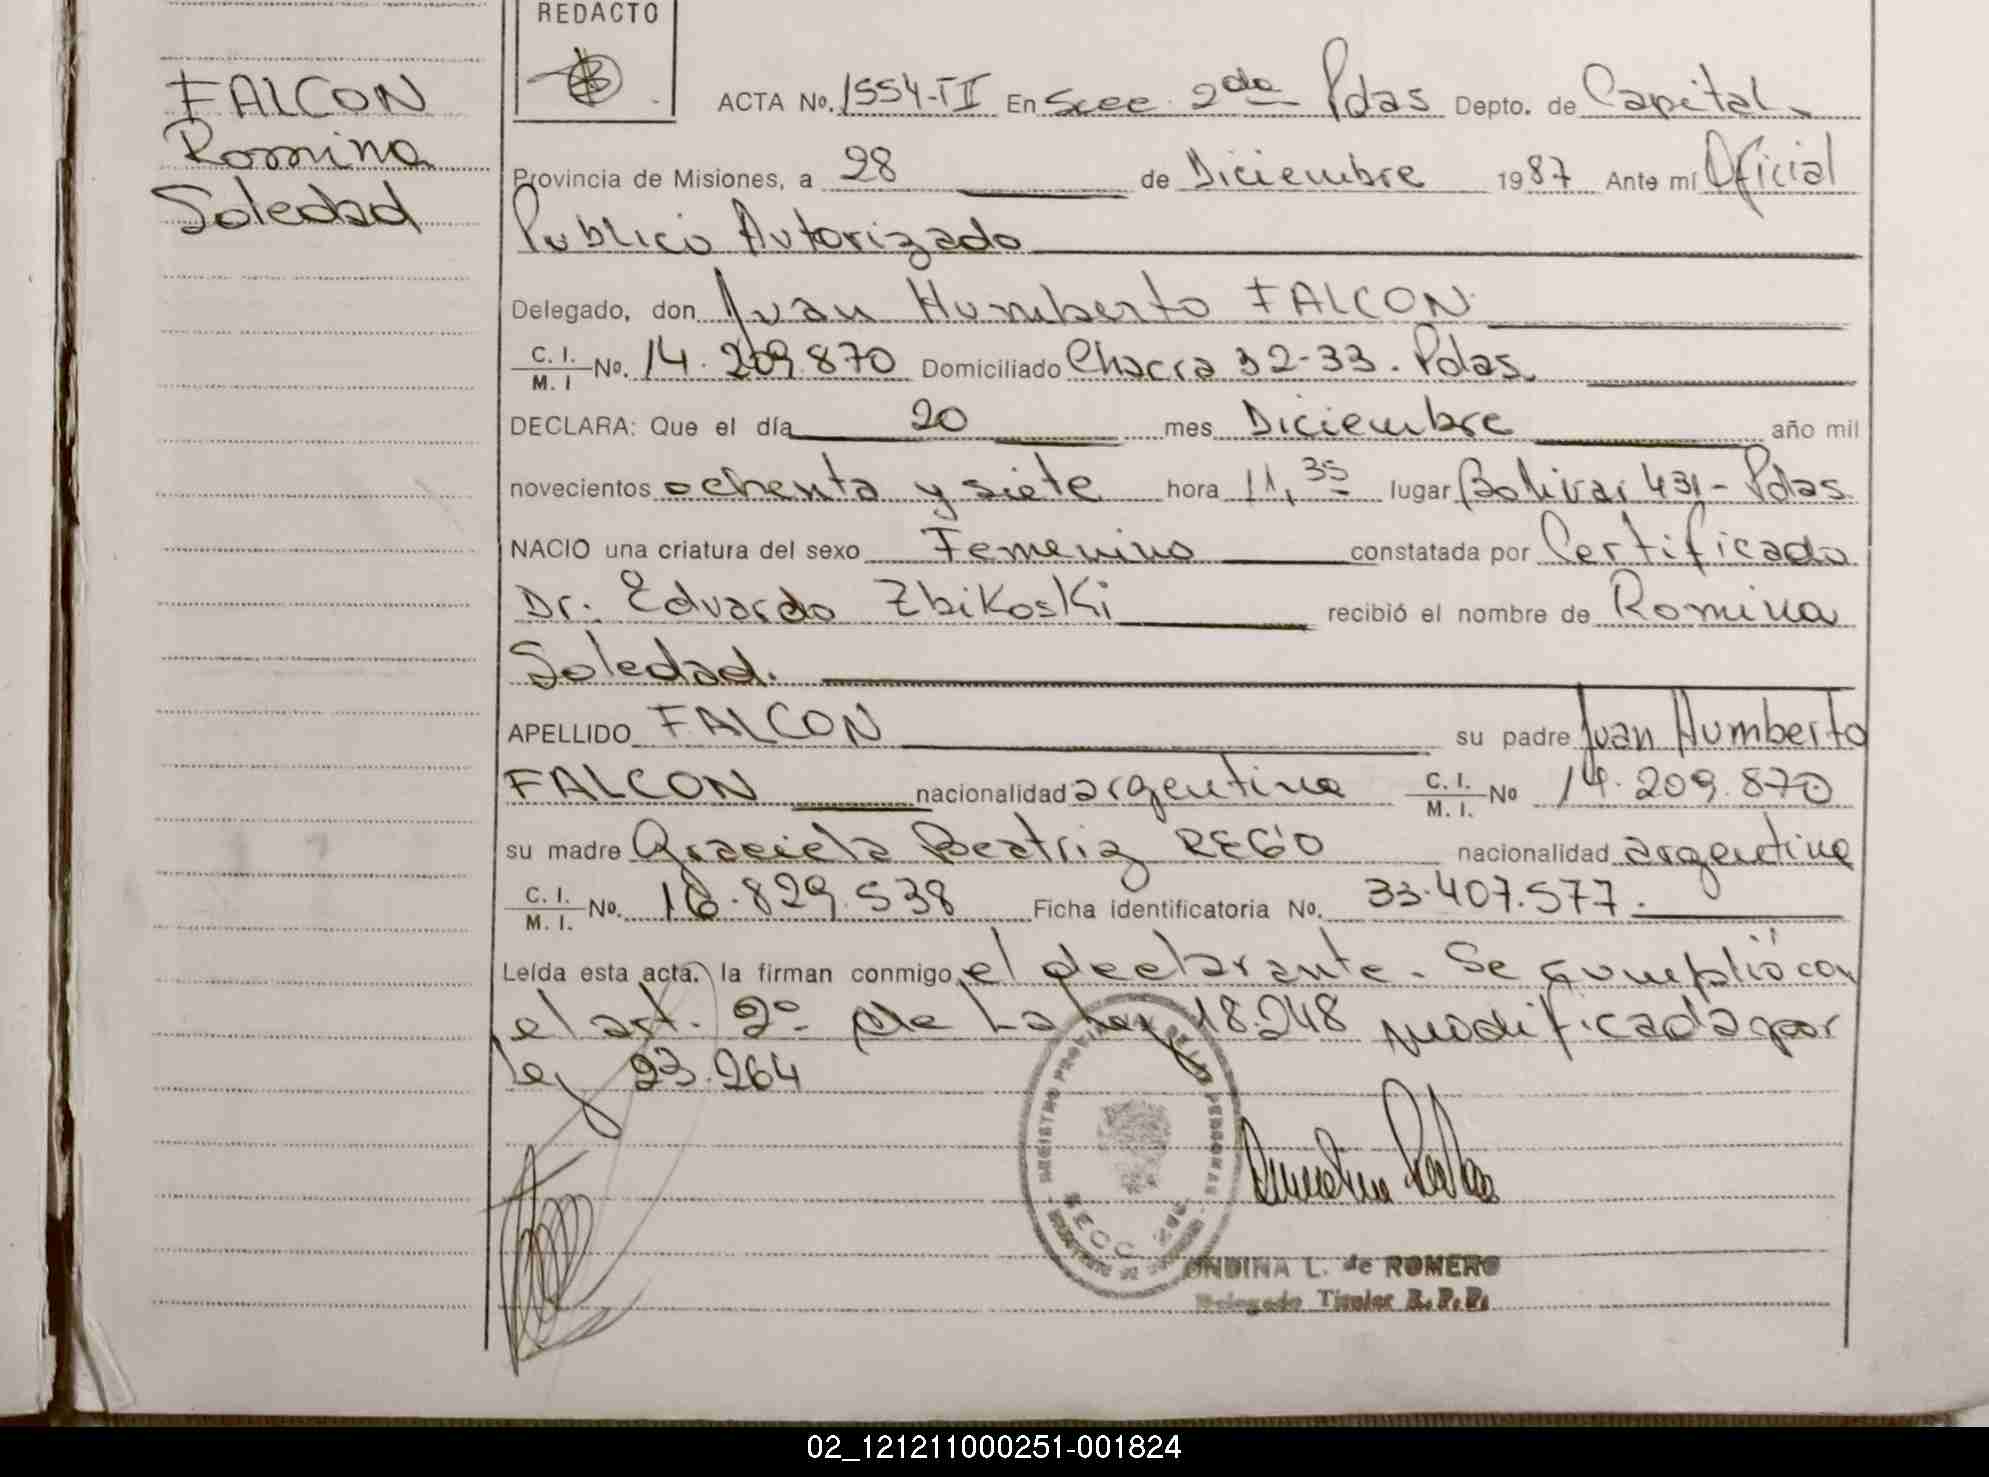 REDACTO
FALCON
Romina
Soledad
ACTA No. 1554-TII En Secc. 2da Pdas Depto. de Capital
Provincia de Misiones, a 28 de Diciembre 1987 Ante mí Oficial
Publico Autorizado
Delegado, don Juan Humberto FALCON
C. I. / M. I No. 14.209.870 Domiciliado Chacra 32-33. Pdas.
DECLARA: Que el día 20 mes Diciembre año mil
novecientos ochenta y siete hora 11,35 lugar Bolivar 431- Pdas.
NACIO una criatura del sexo Femenino constatada por Certificado
Dr. Eduardo Zbikoski recibió el nombre de Romina
Soledad.
APELLIDO FALCON su padre Juan Humberto
FALCON nacionalidad argentina C. I. / M. I. No 14.209.870
su madre Graciela Beatriz REGO nacionalidad argentina
C. I. / M. I. No. 16.829.538 Ficha identificatoria No. 33.407.577.
Leída esta acta. la firman conmigo el declarante. Se cumplió con
el art. 2º de la Ley 18.248 modificada por
ley 23.264
REGISTRO DE LAS PERSONAS
SECC.
ONDINA L. de ROMERO
Delegado Titular R.P.P.
02_121211000251-001824